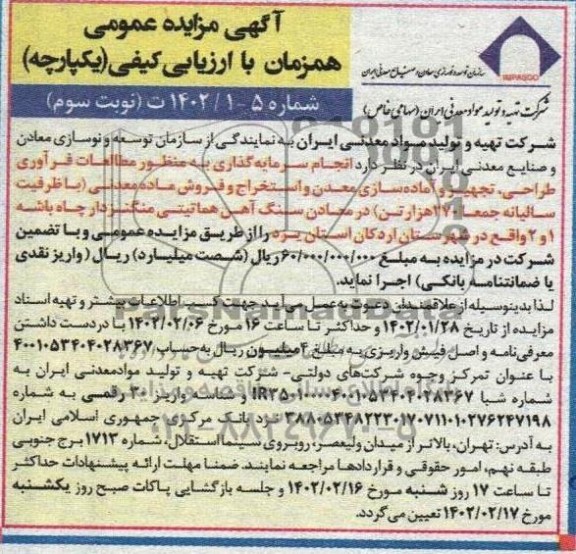 آگهی مزایده عمومی
همزمان با ارزیابی کیفی (یکپارچه)
شماره ۵-۱۴۰۲/۱ ت (نوبت سوم)
IMPASCO
سازمان توسعه و نوسازی معادن و صنایع معدنی ایران
شرکت تهیه و تولید مواد معدنی ایران (سهامی خاص)
شرکت تهیه و تولید مواد معدنی ایران به نمایندگی از سازمان توسعه و نوسازی معادن
و صنایع معدنی ایران در نظر دارد انجام سرمایه گذاری به منظور مطالعات فرآوری
طراحی، تجهیز و آماده سازی معدن و استخراج و فروش ماده معدنی (با ظرفیت
سالیانه جمعا ۲۷۰ هزار تن) در معادن سنگ آهن هماتیتی منگنزدار چاه باشه
۱ و ۲ واقع در شهرستان اردکان استان یزد را از طریق مزایده عمومی و با تضمین
شرکت در مزایده به مبلغ ۶۰/۰۰۰/۰۰۰/۰۰۰ ریال (شصت میلیارد) ریال (واریز نقدی
یا ضمانتنامه بانکی) اجرا نماید.
لذا بدینوسیله از علاقمندان دعوت به عمل می آید جهت کسب اطلاعات بیشتر و تهیه اسناد
مزایده از تاریخ ۱۴۰۲/۰۱/۲۸ و حداکثر تا ساعت ۱۶ مورخ ۱۴۰۲/۰۲/۰۶ با در دست داشتن
معرفی نامه و اصل فیش واریزی به مبلغ ۴ میلیون ریال به حساب ۴۰۰۱۰۵۳۴۰۴۰۲۸۳۶۷
با عنوان تمرکز وجوه شرکت های دولتی- شرکت تهیه و تولید موادمعدنی ایران به
شماره شبا IR۳۵۰۱۰۰۰۰۴۰۰۱۰۵۳۴۰۴۰۲۸۳۶۷ و شناسه واریز ۳۰ رقمی به شماره
۳۸۸۰۵۳۴۸۲۲۳۰۱۷۰۷۱۱۰۱۰۲۷۶۲۴۷۱۹۸ نزد بانک مرکزی جمهوری اسلامی ایران
به آدرس: تهران، بالاتر از میدان ولیعصر، روبروی سینما استقلال، شماره ۱۷۱۳ برج جنوبی
طبقه نهم، امور حقوقی و قراردادها مراجعه نمایند. ضمنا مهلت ارائه پیشنهادات حداکثر
تا ساعت ۱۷ روز شنبه مورخ ۱۴۰۲/۰۲/۱۶ و جلسه بازگشایی پاکات صبح روز یکشنبه
مورخ ۱۴۰۲/۰۲/۱۷ تعیین می گردد.
ParsNamadData
۰۲۱-۸۸۳۴۹۶۷۰-۵